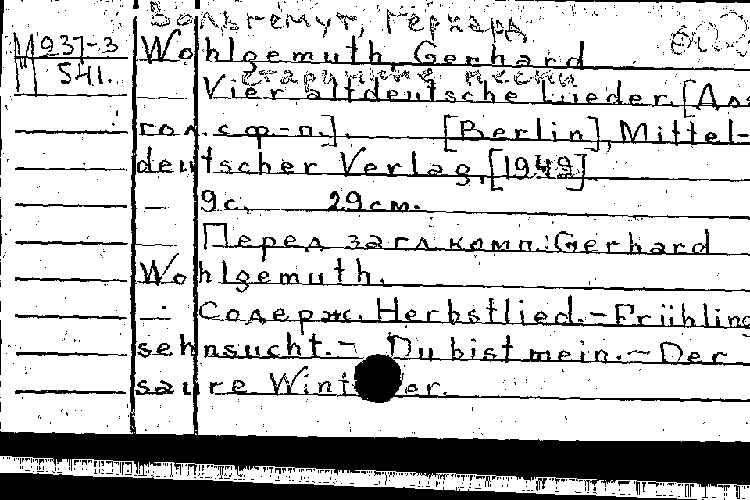 Вольгемут, Герхард
М937-3
541.
Wohlgemuth, Gerhard
старинные песни
Vier altdeutsche Lieder. [Для
гол. с ф-п.]. [Berlin], Mittel-
deutscher Verlag, [1949]
9 с. 29 см.
Перед загл. комп.: Gerhard
Wohlgemuth.
Содерж.: Herbstlied. - Frühling
sehnsucht. - Du bist mein. - Der
saure Winter.